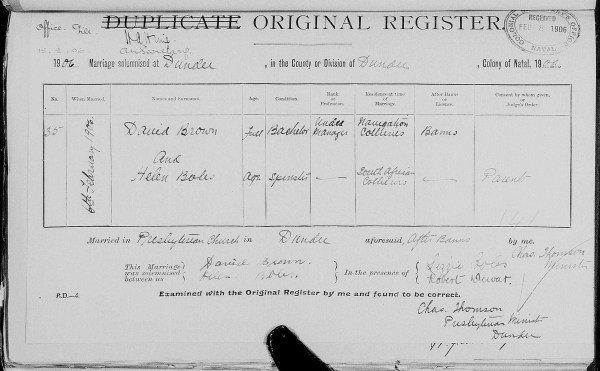 DUPLICATE ORIGINAL REGISTER.
Office.
RECEIVED
FEB 1906
NATAL
1906. Marriage solemnised at Dundee, in the County or Division of Dundee, Colony of Natal, 1906.
No. When Married. Names and Surnames. Age. Condition. Rank or Profession. Residence at time of Marriage. After Banns or Licence. Consent by whom given, or Judge's Order
35 6th February 1906 David Brown full Bachelor Under Manager Navigation Collieries Banns
And
Helen Boles Age Spinster — South African Collieries — Parent
Married in Presbyterian Church in Dundee aforesaid, After Banns by me, Chas. Thomson
Minister
This Marriage was solemnised between us David Brown. Helen Boles. In the presence of Lizzie Boles Robert Dewar.
R.D.—2. Examined with the Original Register by me and found to be correct.
Chas. Thomson
Presbyterian Minister
Dundee